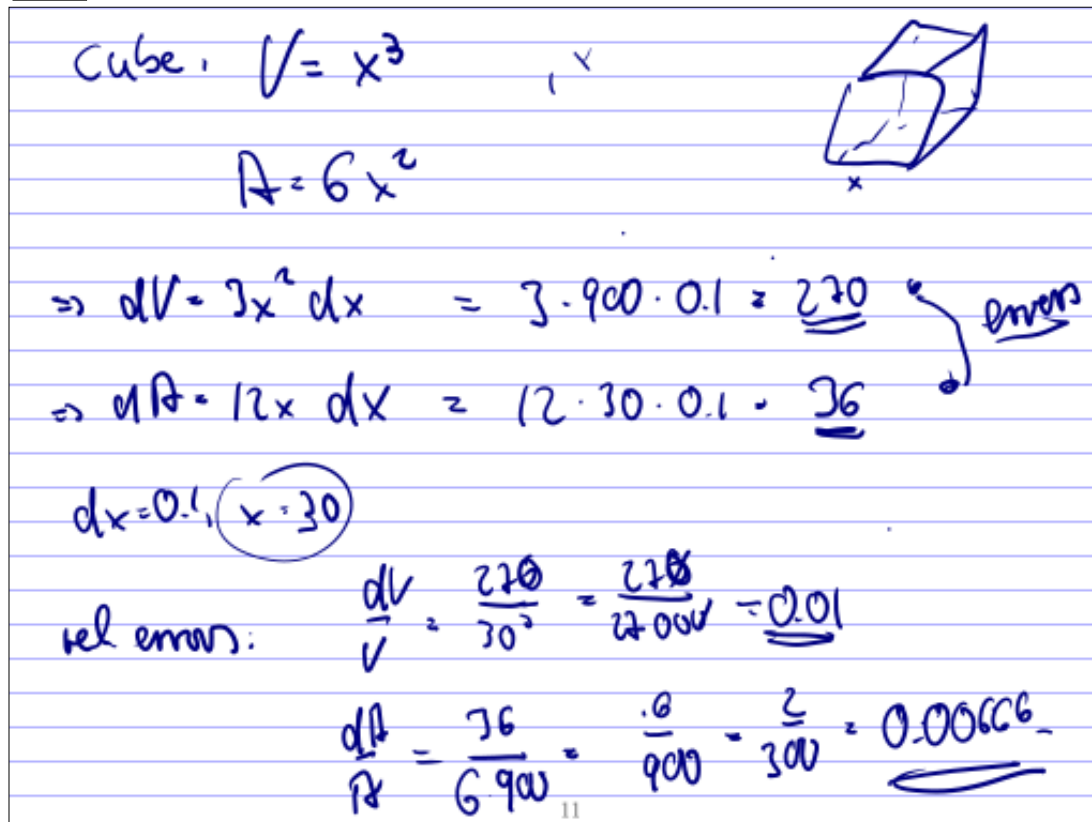 Cube, V = x³
x
A = 6x²
⇒ dV = 3x² dx = 3·900·0.1 = 270
errors
⇒ dA = 12x dx = 12·30·0.1 = 36
dx=0.1, x=30
rel errors: dV/V = 270/30³ = 270/27000 = 0.01
dA/A = 36/6·900 = 6/900 = 2/300 = 0.00666
11